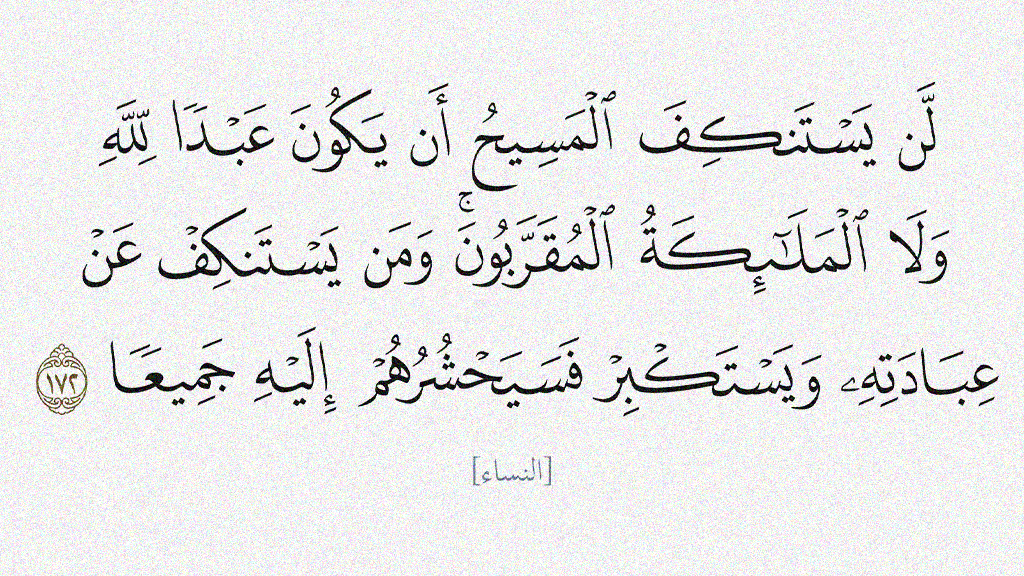 لَّن يَسۡتَنكِفَ ٱلۡمَسِيحُ أَن يَكُونَ عَبۡدٗا لِّلَّهِ
وَلَا ٱلۡمَلَٰٓئِكَةُ ٱلۡمُقَرَّبُونَۚ وَمَن يَسۡتَنكِفۡ عَنۡ
عِبَادَتِهِۦ وَيَسۡتَكۡبِرۡ فَسَيَحۡشُرُهُمۡ إِلَيۡهِ جَمِيعٗا ١٧٢
[النساء]